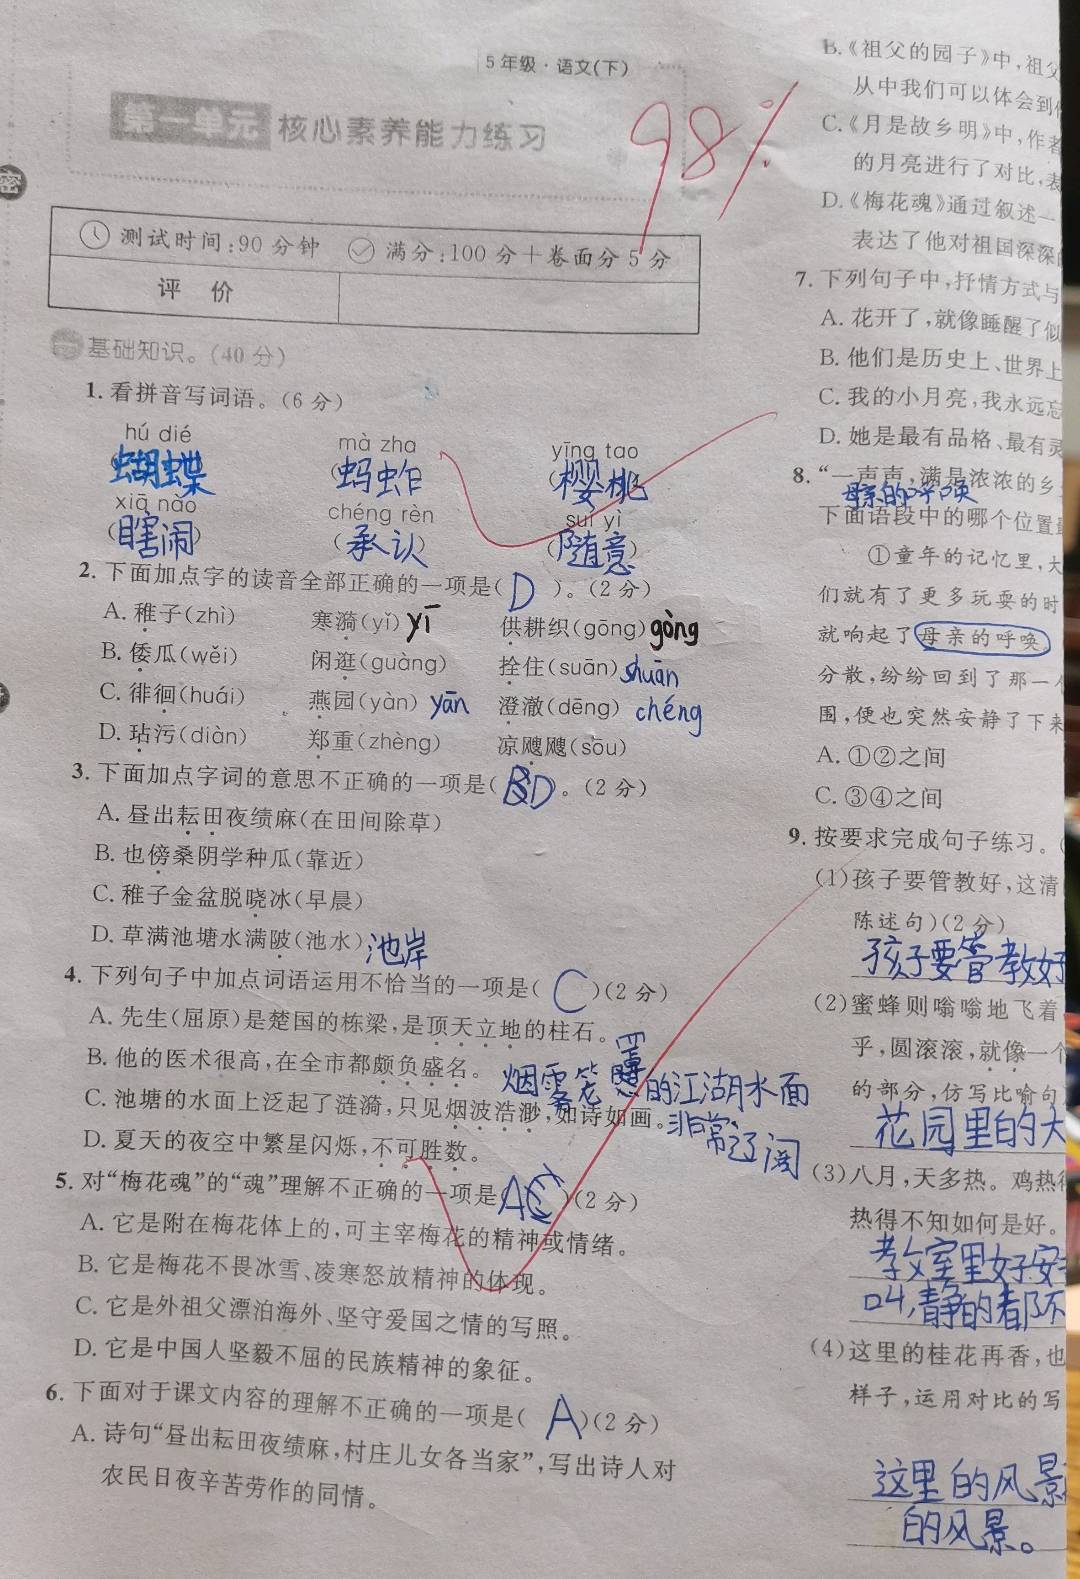 5年级·语文(下)
第一单元 核心素养能力练习
98%
密
测试时间:90分钟 满分:100分+卷面分5分
评 价
一 基础知识。(40分)
1. 看拼音写词语。(6分)
hú dié mà zha yīng tao
(蝴蝶) (蚂蚱) (樱桃)
xiā nào chéng rèn suí yì
(瞎闹) (承认) (随意)
2. 下面加点字的读音全部正确的一项是( D )。(2分)
A. 稚子(zhì) 寒漪(yǐ) yī 供耕织(gōng) gòng
B. 倭瓜(wěi) 闲逛(guàng) 拴住(suān) shuān
C. 徘徊(huái) 燕园(yàn) yān 澄澈(dēng) chéng
D. 玷污(diàn) 郑重(zhèng) 凉飕飕(sōu)
3. 下面加点字词的意思不正确的一项是( D )。(2分)
A. 昼出耘田夜绩麻(在田间除草)
B. 也傍桑阴学种瓜(靠近)
C. 稚子金盆脱晓冰(早晨)
D. 草满池塘水满陂(池水) 池岸
4. 下列句子中加点词语运用不恰当的一项是( C )(2分)
A. 先生(屈原)是楚国的栋梁,是顶天立地的柱石。
B. 他的医术很高,在全市都颇负盛名。
烟雾笼罩的江湖水面
C. 池塘的水面上泛起了涟漪,只见烟波浩渺,如诗如画。
非常辽阔
D. 夏天的夜空中繁星闪烁,不可胜数。
5. 对“梅花魂”的“魂”理解不正确的一项是( A )(2分)
A. 它是附在梅花体上的,可主宰梅花的精神或情绪。
B. 它是梅花不畏冰雪、凌寒怒放精神的体现。
C. 它是外祖父漂泊海外、坚守爱国之情的写照。
D. 它是中国人坚毅不屈的民族精神的象征。
6. 下面对于课文内容的理解不正确的一项是( A )(2分)
A. 诗句“昼出耘田夜绩麻,村庄儿女各当家”,写出诗人对
农民日夜辛苦劳作的同情。
B.《祖父的园子》中,祖父
从中我们可以体会到
C.《月是故乡明》中,作者
的月亮进行了对比,表
D.《梅花魂》通过叙述一
表达了他对祖国深深
7. 下列句子中,抒情方式与
A. 花开了,就像睡醒了似
B. 他们是历史上、世界上
C. 我的小月亮,我永远忘
D. 她是最有品格、最有灵
8. “一声声,满是浓浓的乡
母亲的呼唤
下面语段中的哪个位置
①童年的记忆里,大
们就有了更多玩耍的时
就响起了母亲的呼唤。
分散,纷纷回到了那一
围,便也突然安静了下来
A. ①②之间
C. ③④之间
9. 按要求完成句子练习。
(1)孩子要管教好,这清
陈述句)(2分)
孩子要管教好
(2)蜜蜂则嗡嗡地飞着
乎,圆滚滚,就像一个
的部分,仿写比喻句
花园里的大
(3)八月,天多热。鸡热得
热得不知如何是好。
教室里好安
叫,静的都不
(4)这里的桂花再香,也
样子,运用对比的写
这里的风景
的风景。